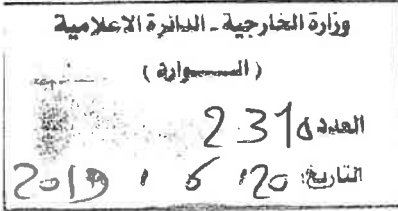 وزارة الخارجية - الدائرة الاعلامية
( الـــواردة )
العدد 231
التاريخ: 20 / 6 / 2019